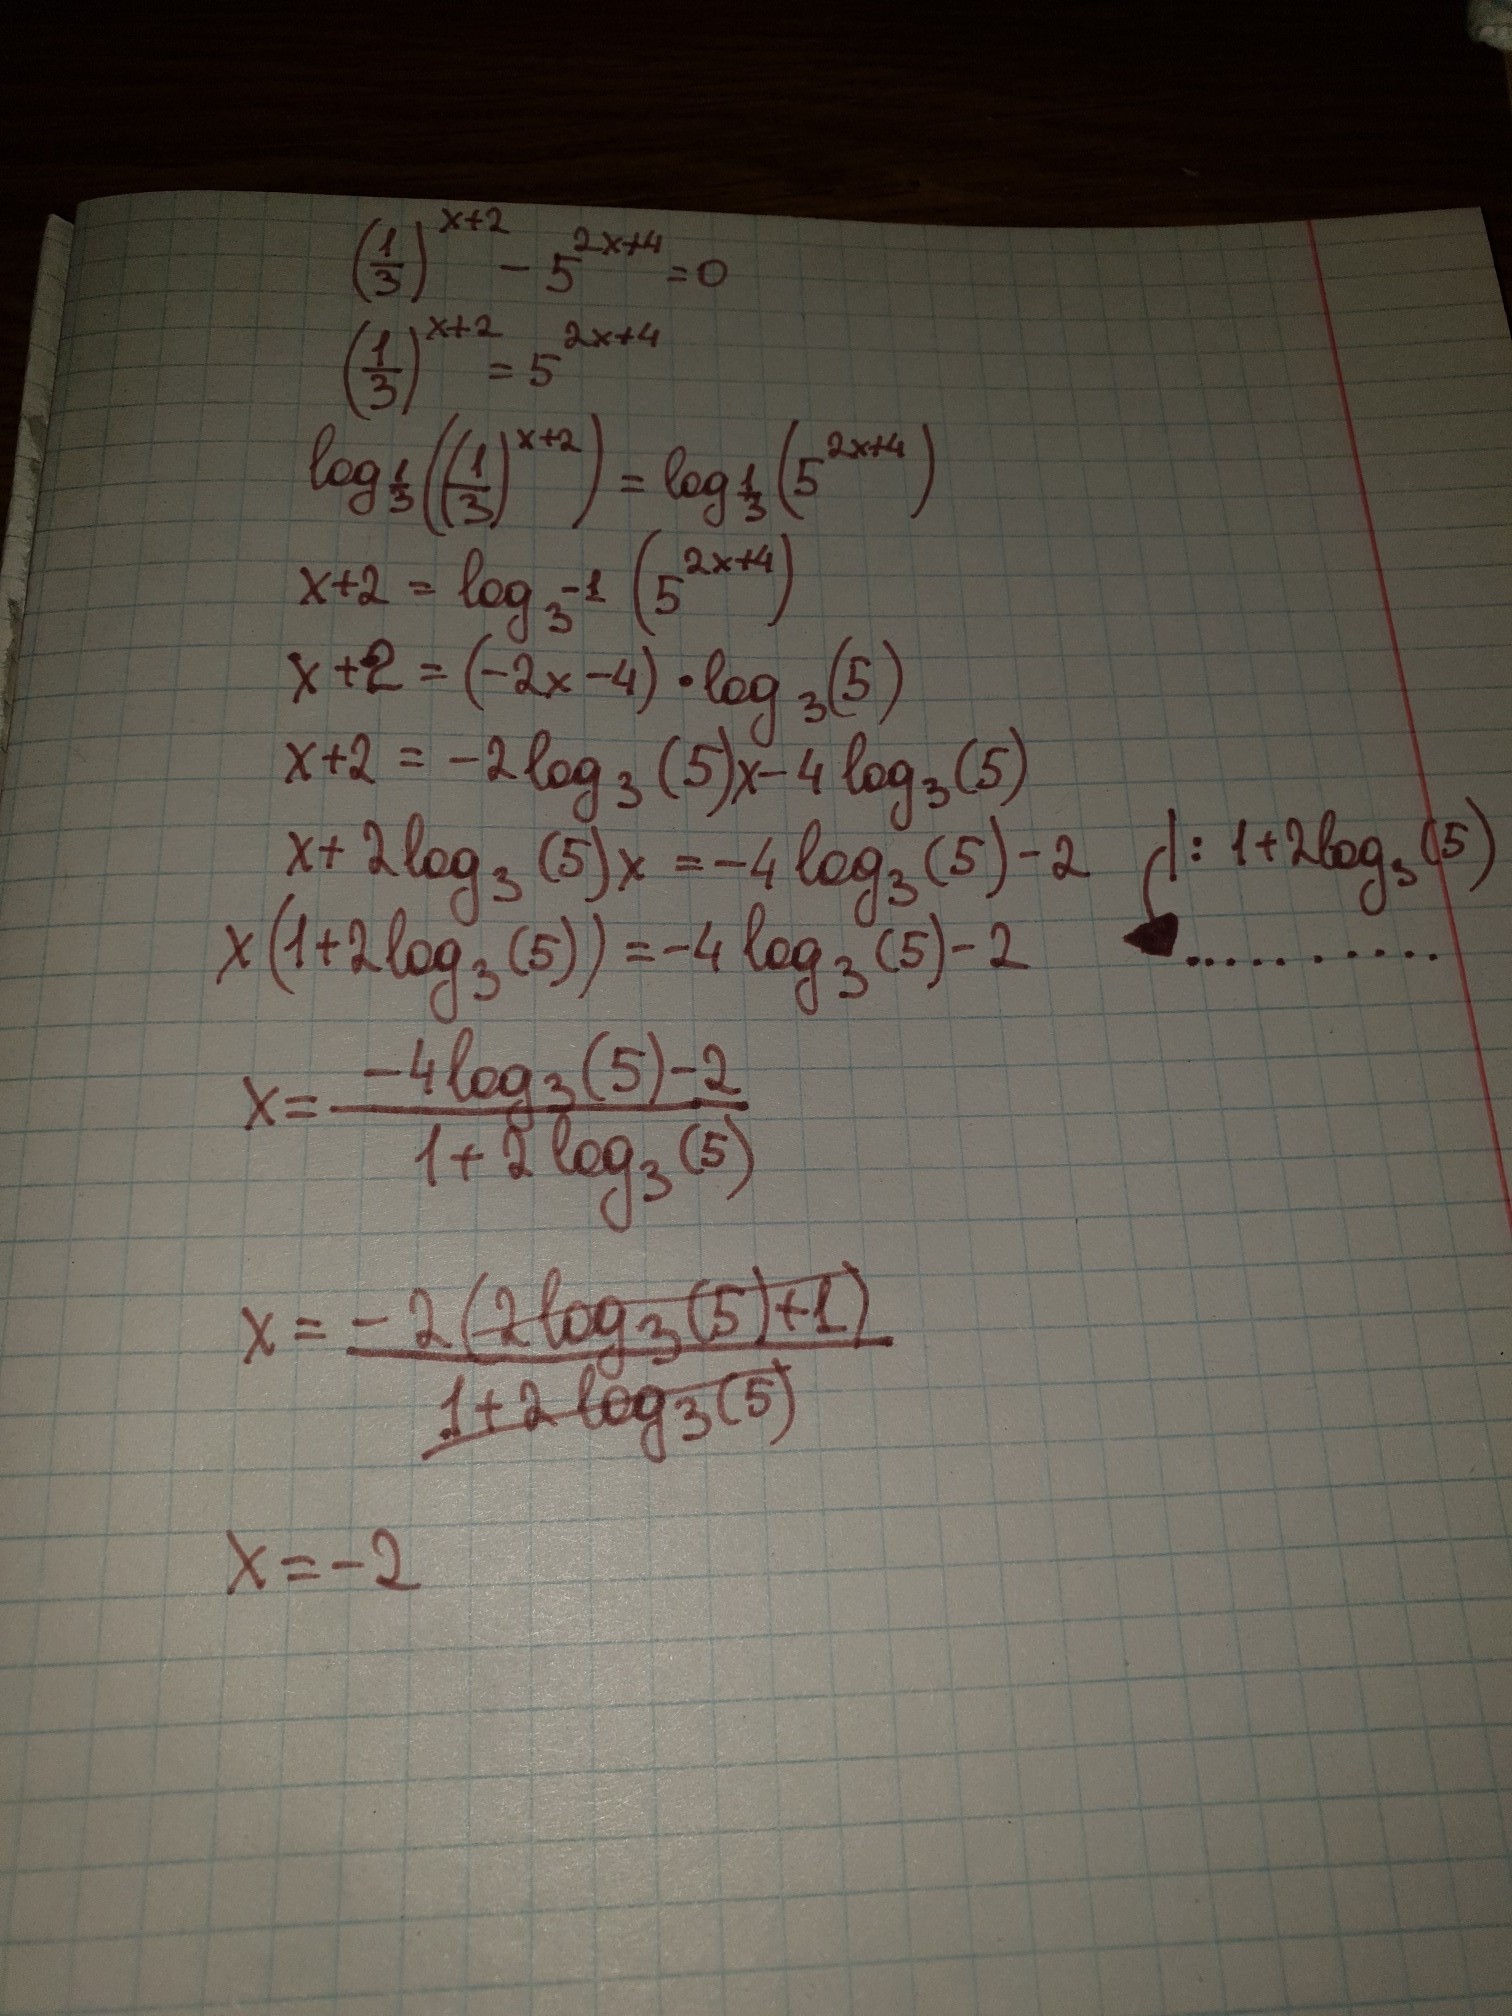 (1/3)^(x+2) - 5^(2x+4) = 0
(1/3)^(x+2) = 5^(2x+4)
log_(1/3)((1/3)^(x+2)) = log_(1/3)(5^(2x+4))
x+2 = log_(3^-1)(5^(2x+4))
x+2 = (-2x-4)·log_3(5)
x+2 = -2log_3(5)x-4log_3(5)
x+2log_3(5)x = -4log_3(5)-2 |: 1+2log_3(5)
x(1+2log_3(5)) = -4log_3(5)-2 ..........
x = (-4log_3(5)-2)/(1+2log_3(5))
x = -2(2log_3(5)+1)/(1+2log_3(5))
x = -2